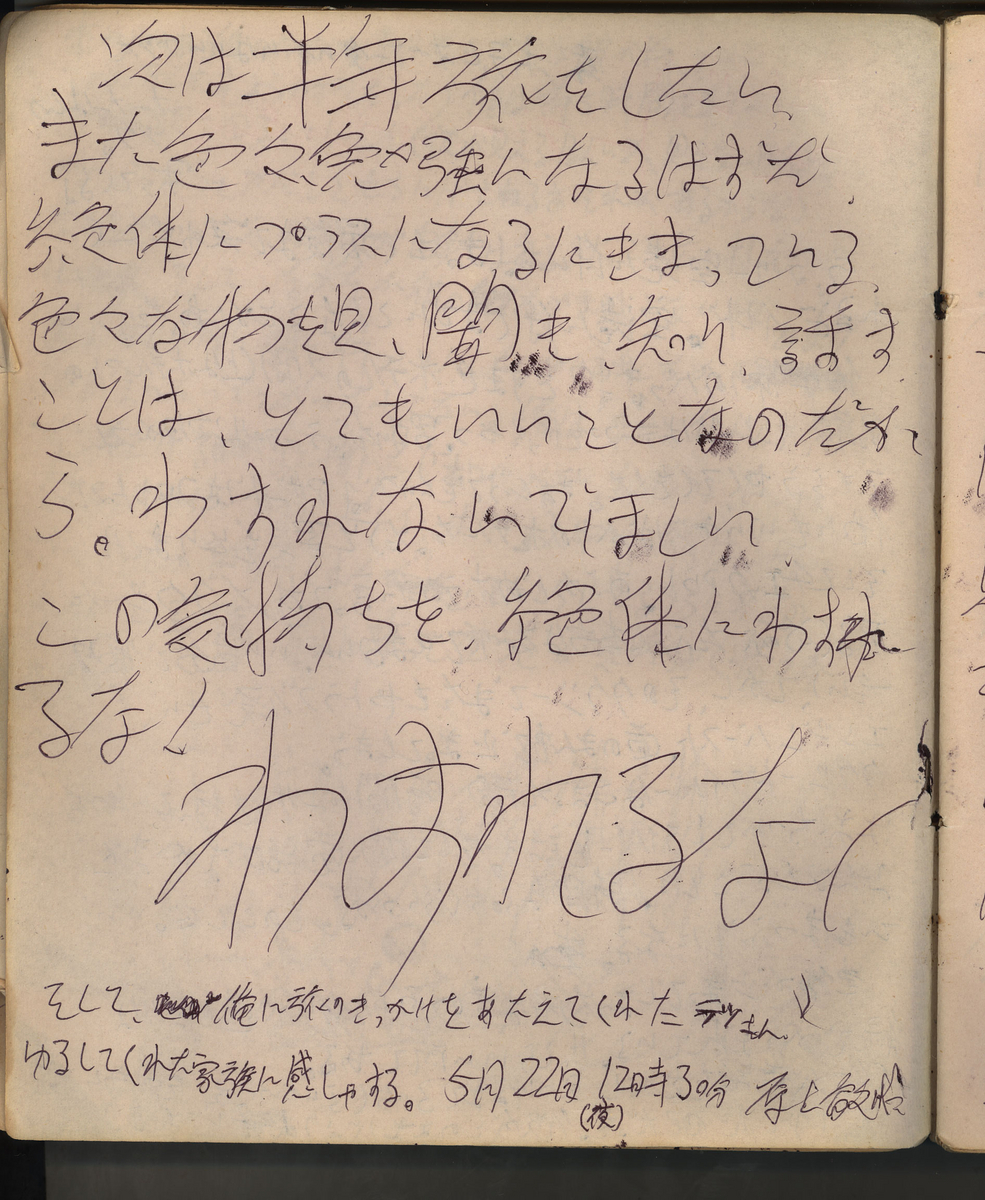 次は半年旅をしたい
また色々勉強になるはずだ、
絶体にプラスになるにきまっている、
色々な物を見、聞き、知り、話す
ことは、とてもいいことなのだか
ら。わすれないでほしい、
この気持ちを、絶体にわすれ
るなよ
わすれるなよ
そして、俺に旅のきっかけをあたえてくれた テツさん、
ゆるしてくれた家族に感しゃする。 5月22日 12時30分
(夜)